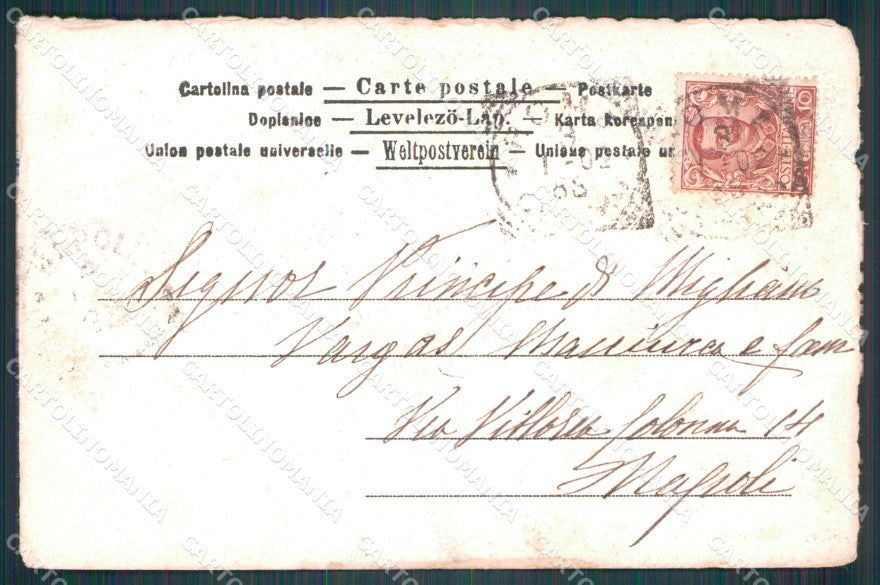 Cartolina postale — Carte postale — Postkarte
Dopisnice — Levelező-Lap. — Karta korespon
Union postale universelle — Weltpostverein — Unione postale un
10
POSTE
Signor Principe di Migliano
Vargas Macciucca e fam
Via Vittoria Colonna 14
Napoli
CARTOLINOMANIA